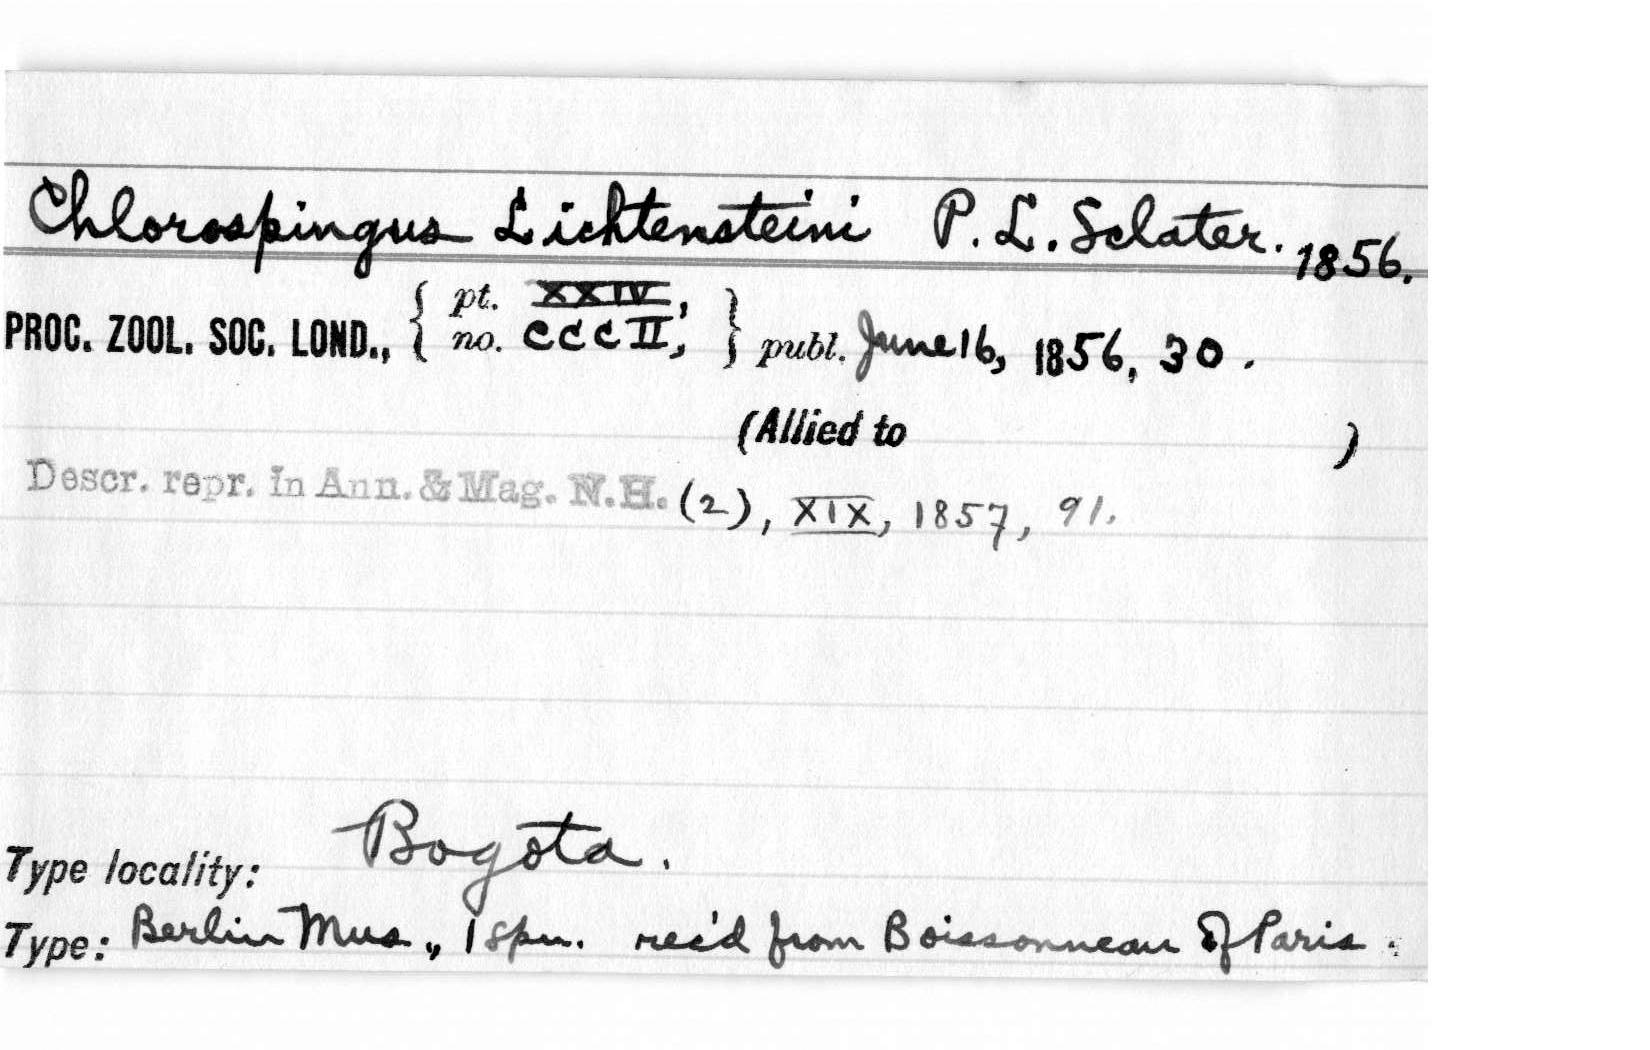 Chlorospingus Lichtensteini P. L. Sclater. 1856.
PROC. ZOOL. SOC. LOND., { pt. XXIV, no. CCCII, } publ. June 16, 1856, 30.
(Allied to )
Descr. repr. in Ann. & Mag. N.H. (2), XIX, 1857, 91.
Type locality: Bogota.
Type: Berlin Mus., 1 spn. rec'd from Boissonneau of Paris.